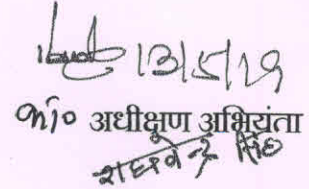 13/5/19
का० अधीक्षण अभियंता
राघवेन्द्र सिंह